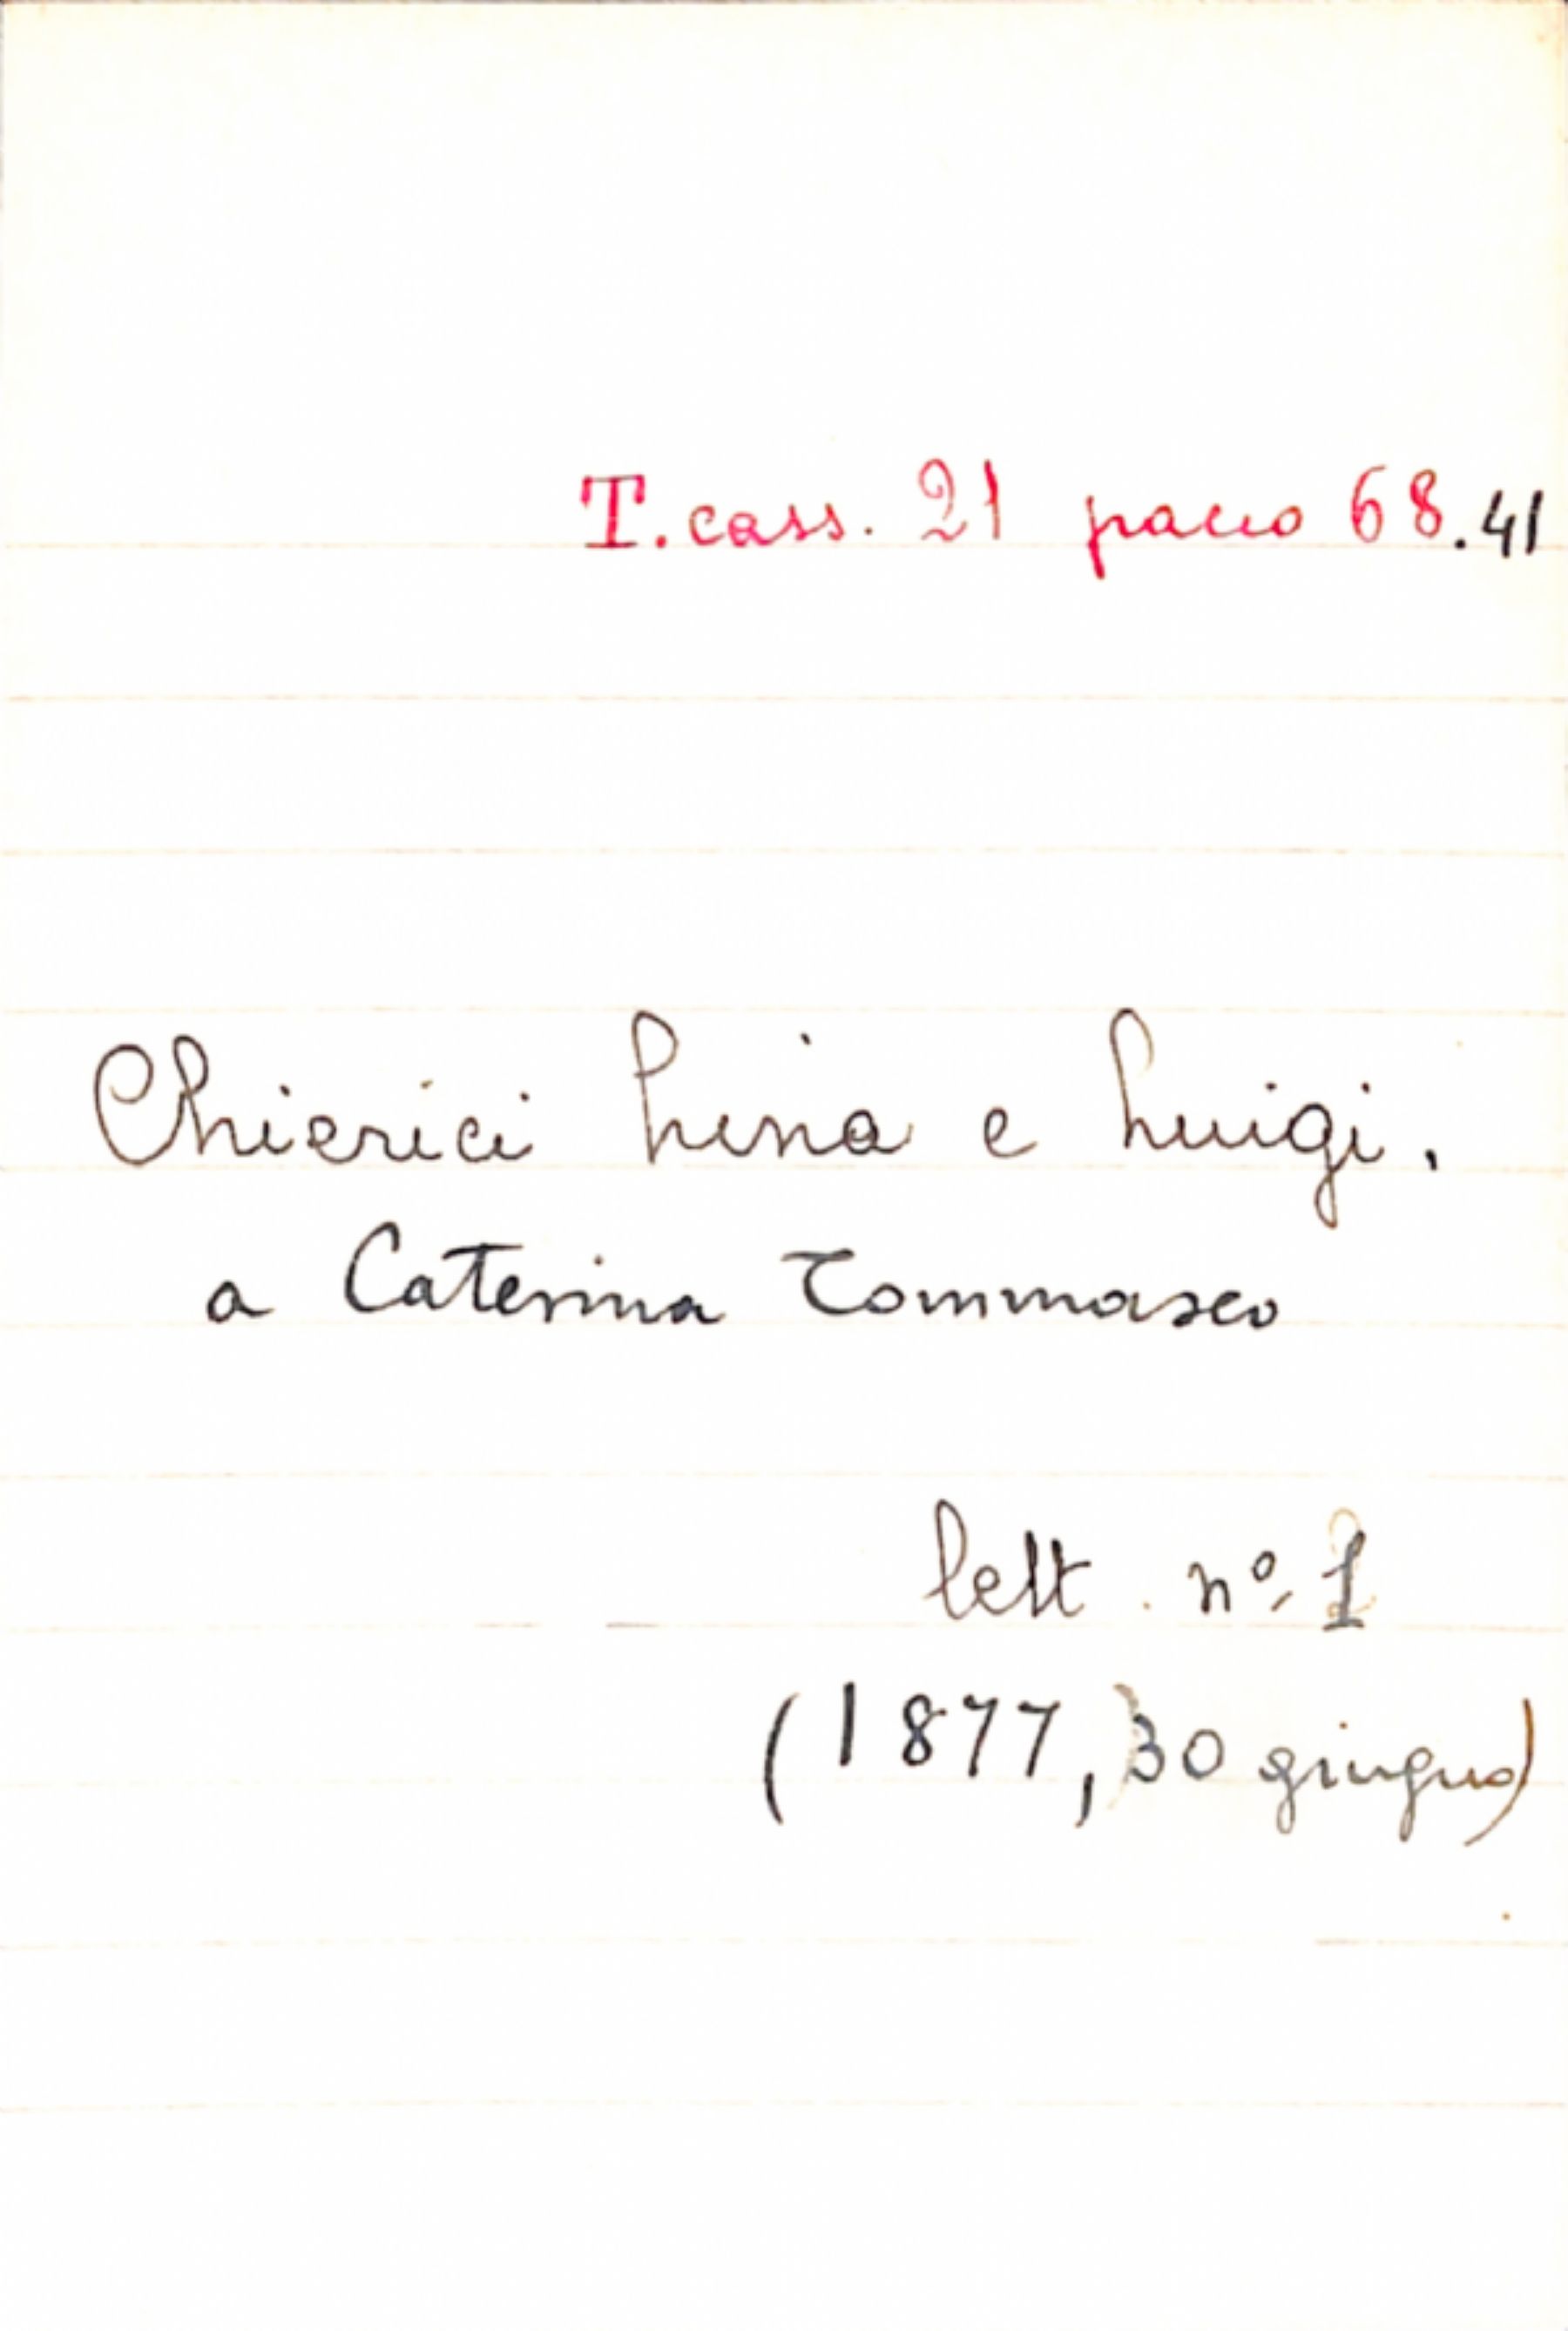 T. cass. 21 pacco 68.41
Chierici Lina e Luigi.
a Caterina Tommaseo
lett. nº. 1
(1877, 30 giugno)